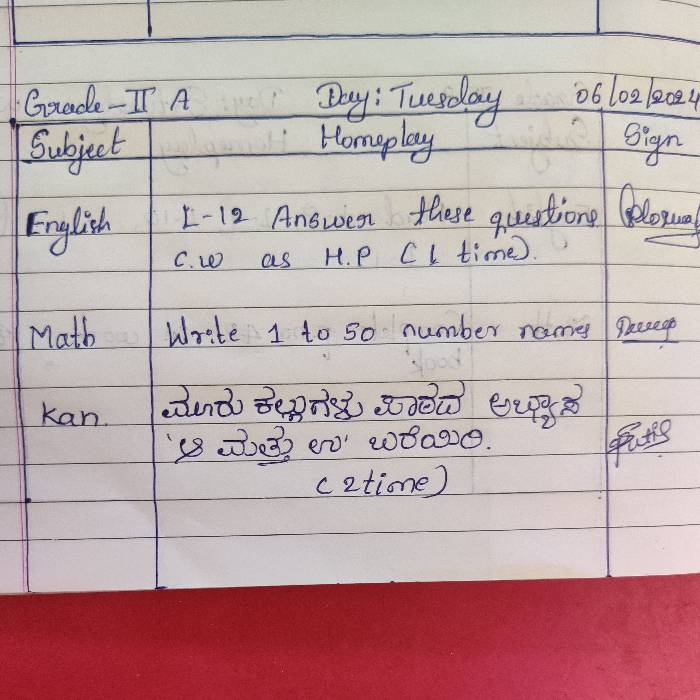 Grade-II A Day: Tuesday 06/02/2024
Subject Homeplay Sign
English L-12 Answer these questions
C.W as H.P (1 time).
Math Write 1 to 50 number names
Kan. ಮೂರು ಕಲ್ಲುಗಳು ಪಾಠದ ಅಭ್ಯಾಸ
'ಆ ಮತ್ತು ಉ' ಬರೆಯಿರಿ.
(2time)